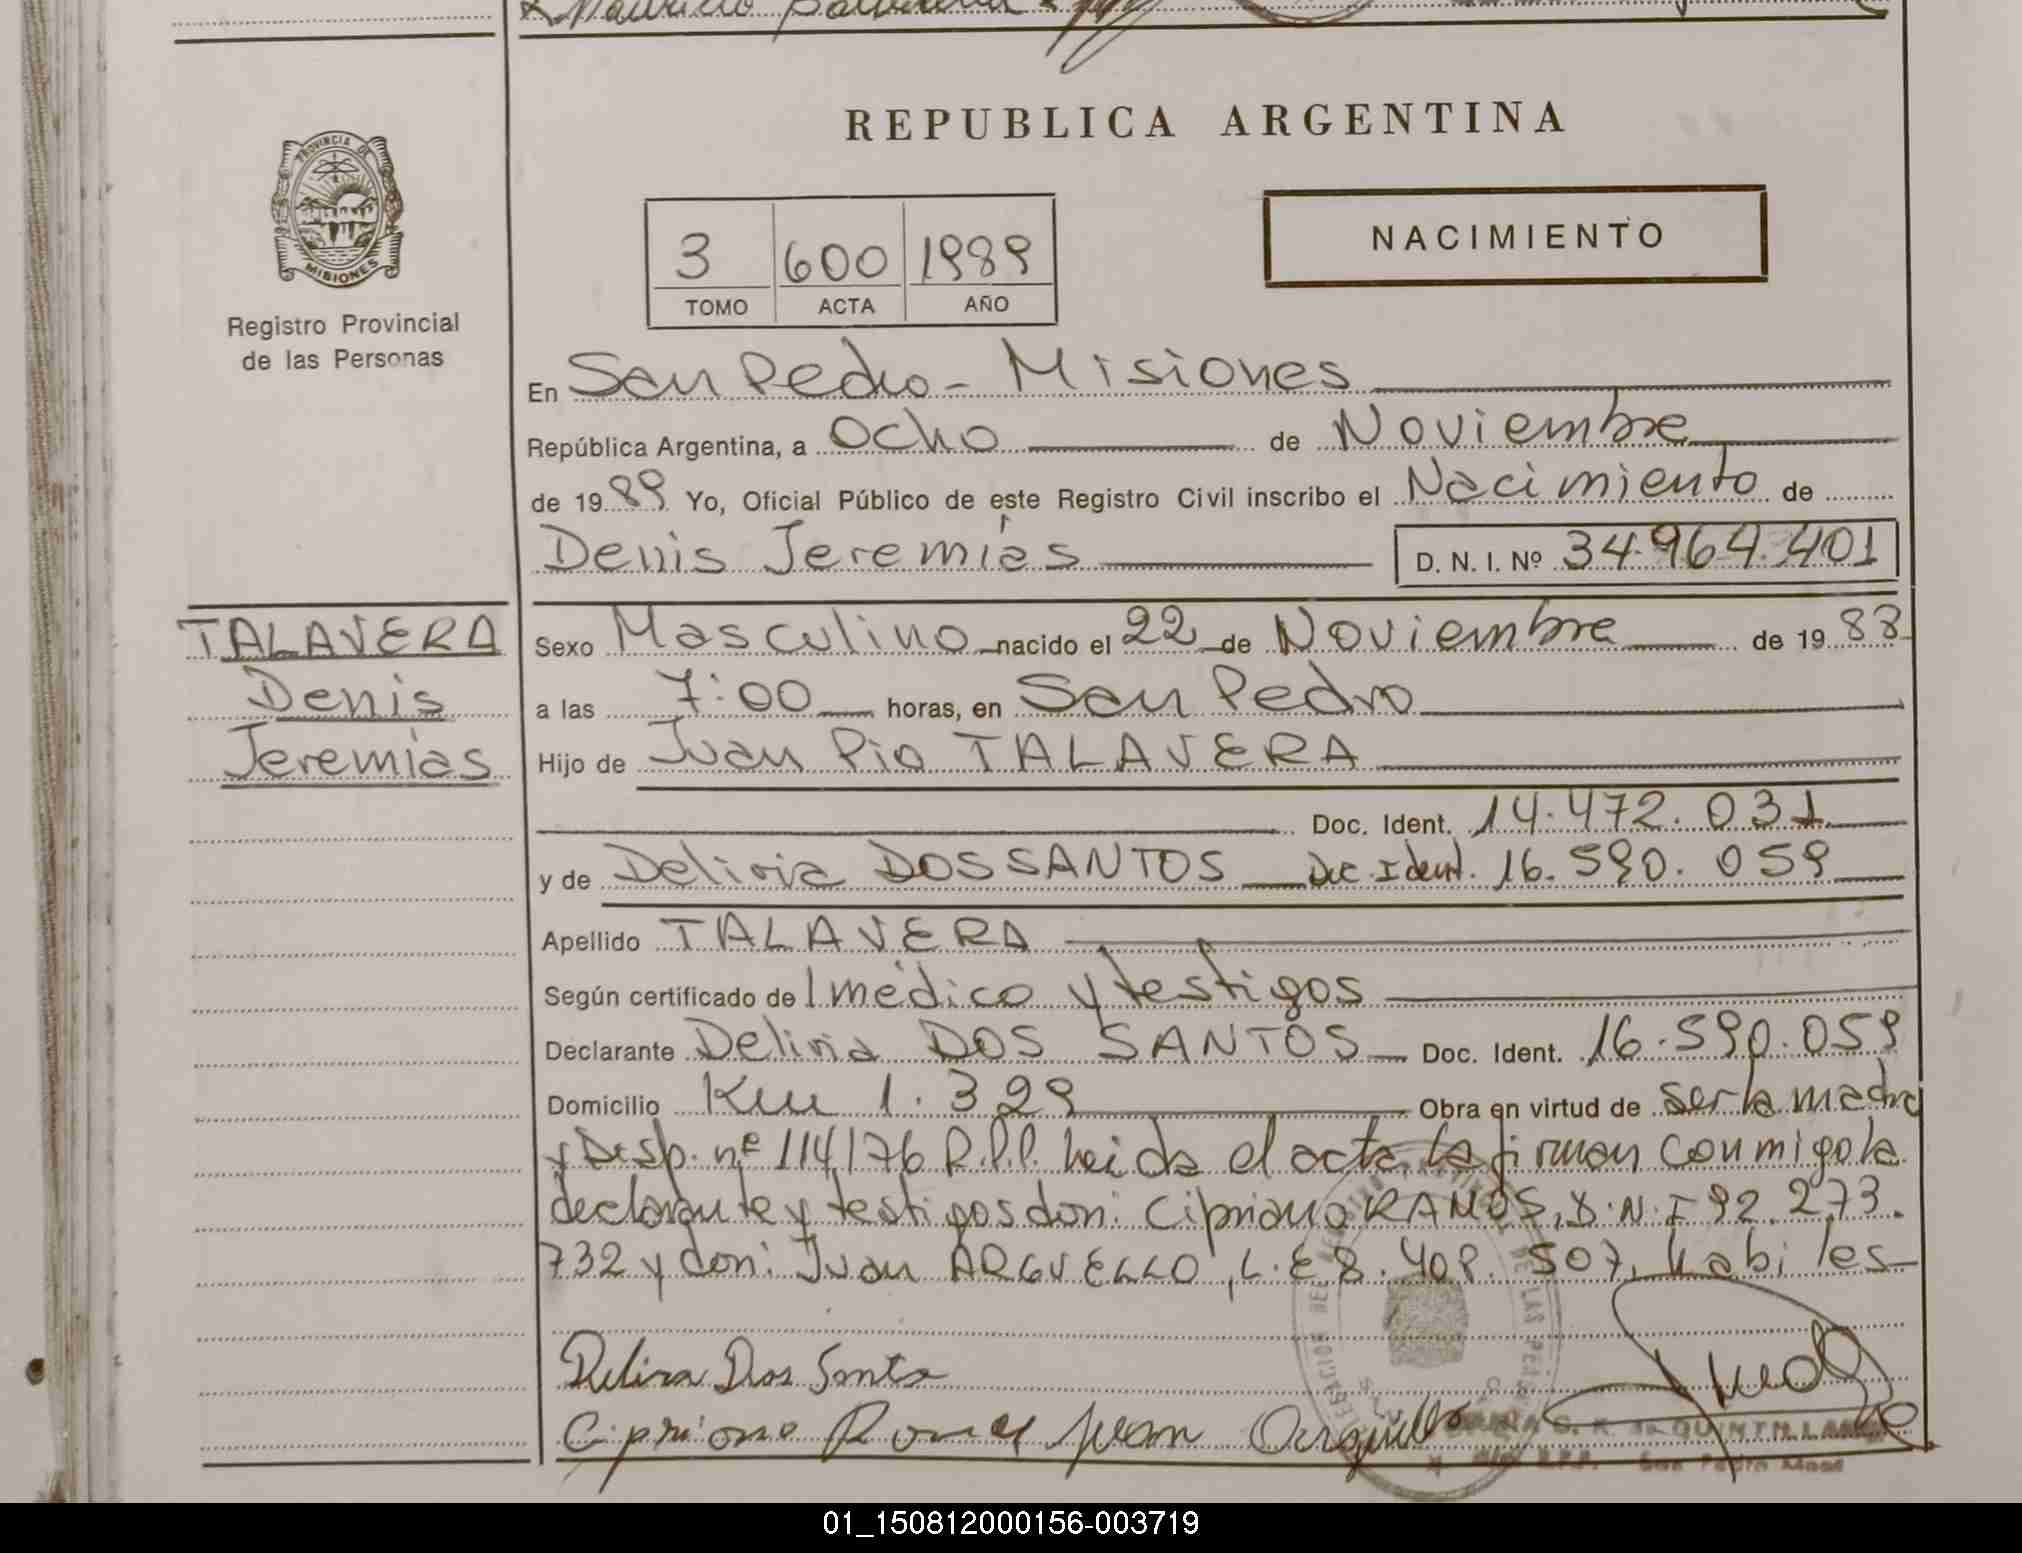 REPUBLICA ARGENTINA
PROVINCIA DE
MISIONES
Registro Provincial
de las Personas
3 600 1989
TOMO ACTA AÑO
NACIMIENTO
En San Pedro - Misiones
República Argentina, a Ocho de Noviembre
de 1989 Yo, Oficial Público de este Registro Civil inscribo el Nacimiento de
Denis Jeremías D. N. I. Nº 34.964.401
TALAVERA
Denis
Jeremías
Sexo Masculino nacido el 22 de Noviembre de 1988
a las 7:00 horas, en San Pedro
Hijo de Juan Pio TALAVERA
Doc. Ident. 14.472.031
y de Deliria DOS SANTOS Doc. Ident. 16.590.059
Apellido TALAVERA
Según certificado del médico y testigos
Declarante Deliria DOS SANTOS Doc. Ident. 16.590.059
Domicilio Km 1.329 Obra en virtud de ser la madre
y Disp. nº 114/76 R.P.P. leida el acta la firman conmigo la
declarante y testigos don: Cipriano RAMOS, D.N.I 92.273.
732 y don: Juan ARGUELLO, L.E 8.409.507, habiles
Delira Dos Santos
Cipriano Ramos Juan Arguello
QUINTILLANA
San Pedro
01_150812000156-003719